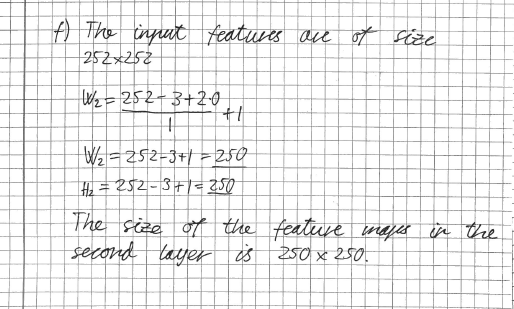 f) The input features are of size
252×252
W₂ = 252 - 3 + 2·0 + 1
1
W₂ = 252-3+1 = 250
H₂ = 252-3+1 = 250
The size of the feature maps in the
second layer is 250 × 250.